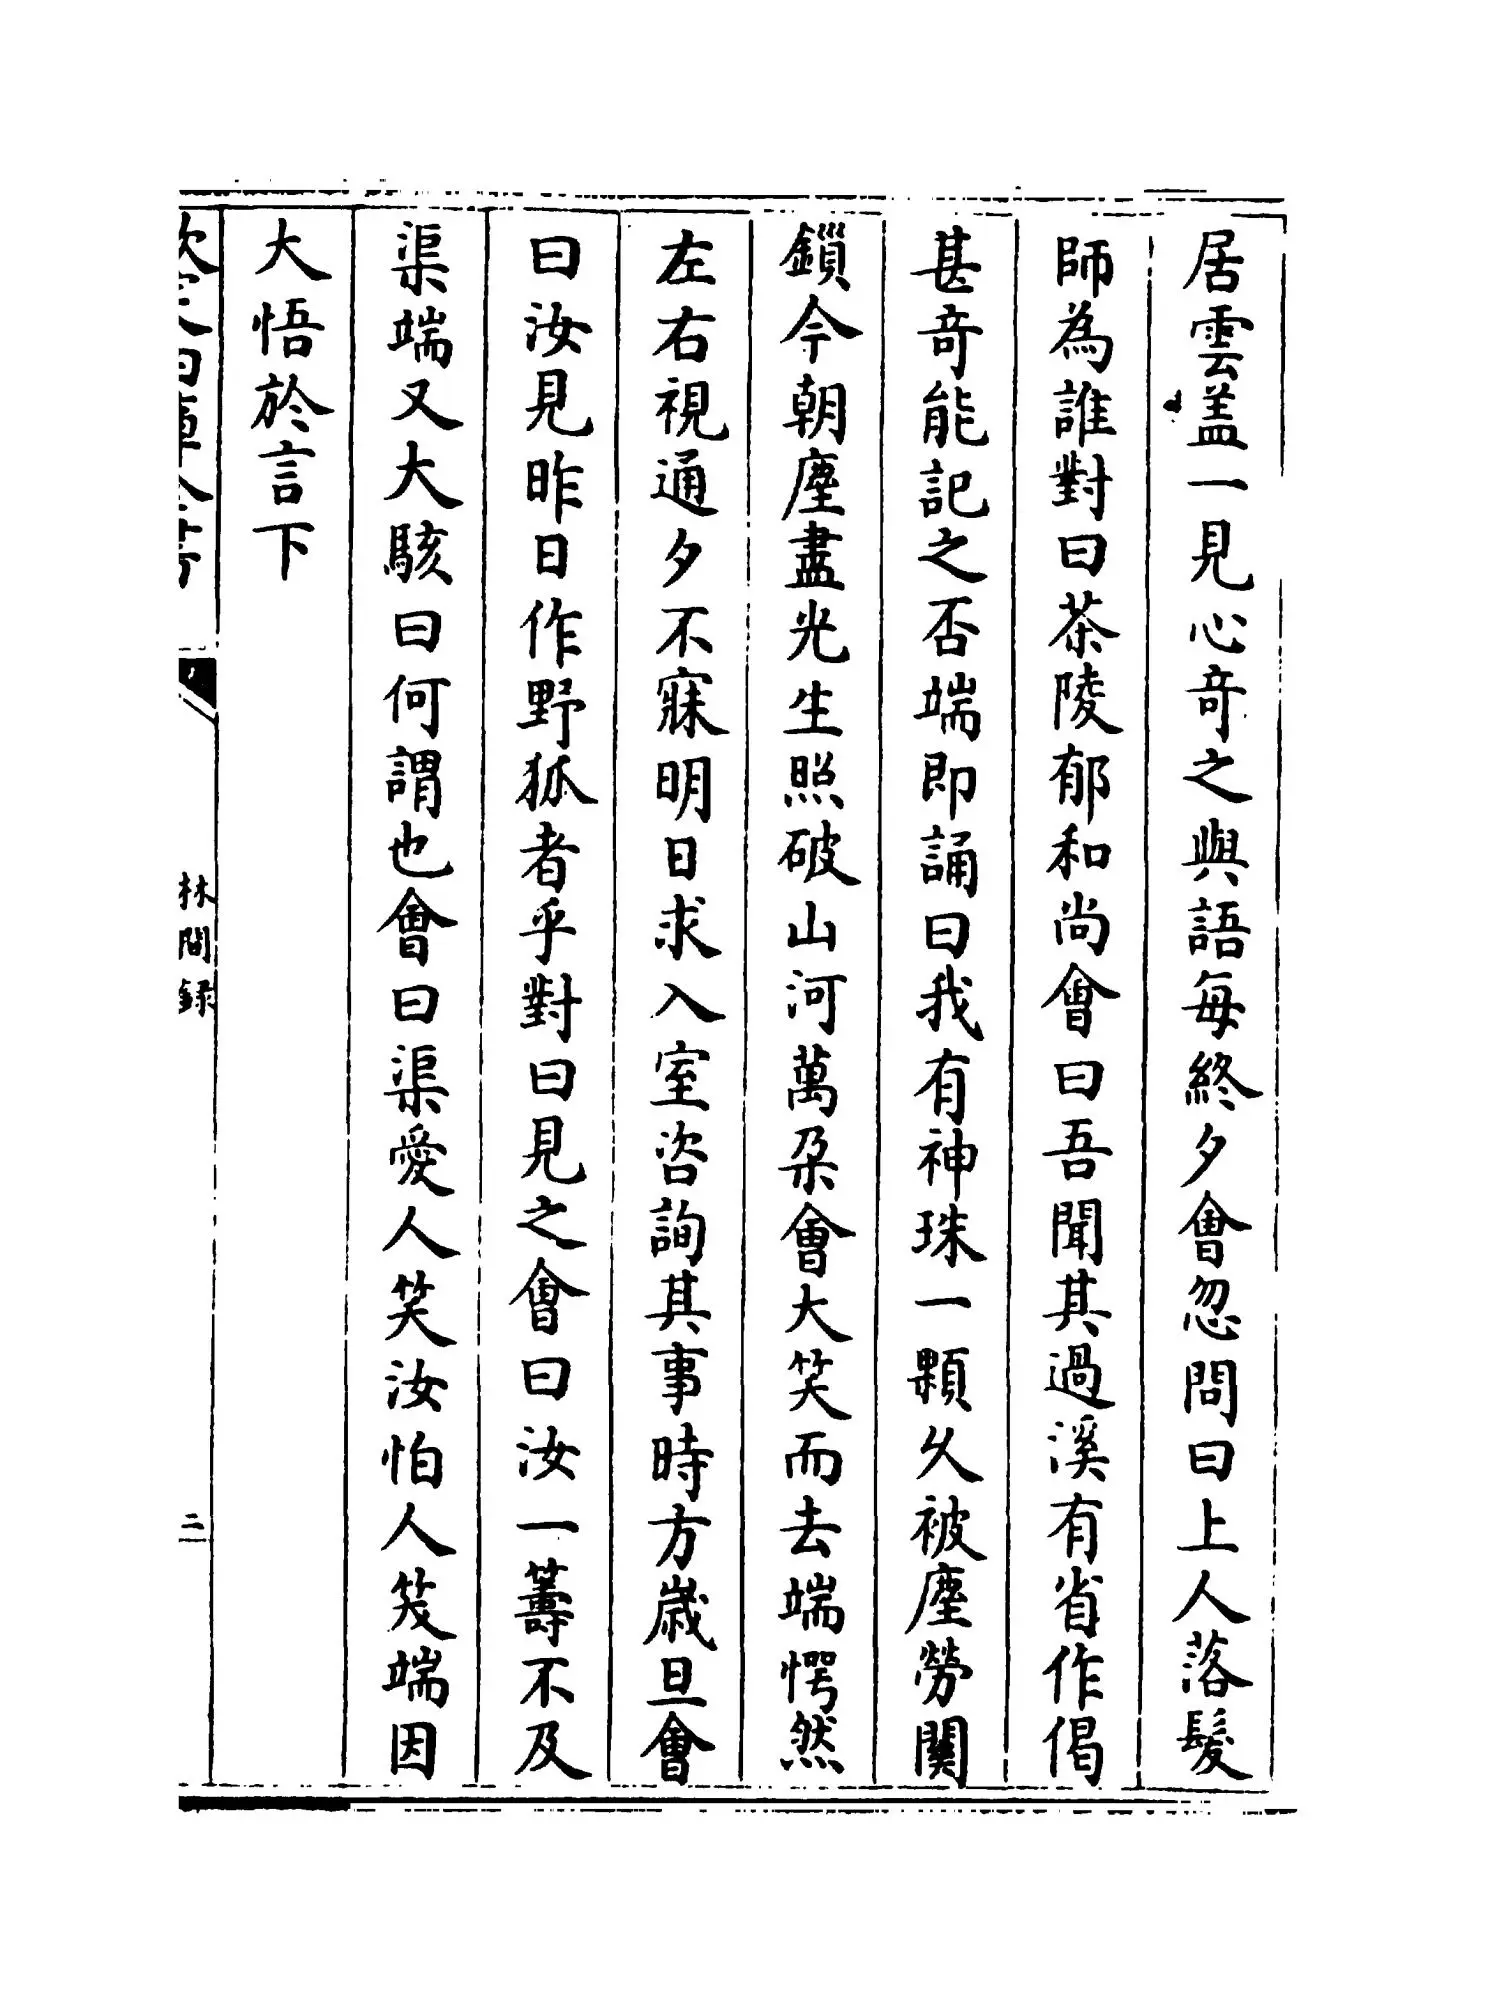 居雲盖一見心竒之與語每終夕㑹忽問曰上人落髮
師為誰對曰茶陵郁和尚㑹曰吾聞其過溪有省作偈
甚竒能記之否端即誦曰我有神珠一顆乆被塵勞闗
鎖今朝塵盡光生照破山河萬朶㑹大笑而去端愕然
左右視通夕不寐明日求入室咨詢其事時方歳旦㑹
曰汝見昨日作野狐者乎對曰見之㑹曰汝一籌不及
渠端又大駭曰何謂也㑹曰渠愛人笑汝怕人笑端因
大悟於言下
欽定四庫全書
林間録
二